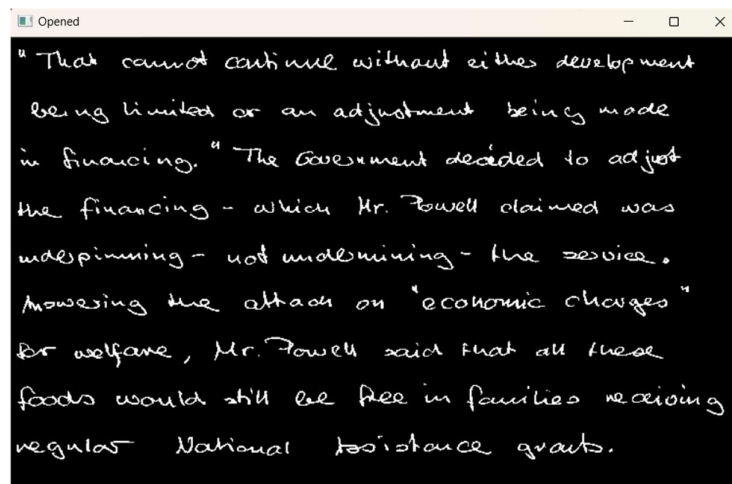 Opened
"That cannot continue without either development
being limited or an adjustment being made
in financing." The Government decided to adjust
the financing - which Mr. Powell claimed was
underpinning - not undermining - the service.
Answering the attack on "economic charges"
for welfare, Mr. Powell said that all these
foods would still be free in families receiving
regular National Assistance grants.